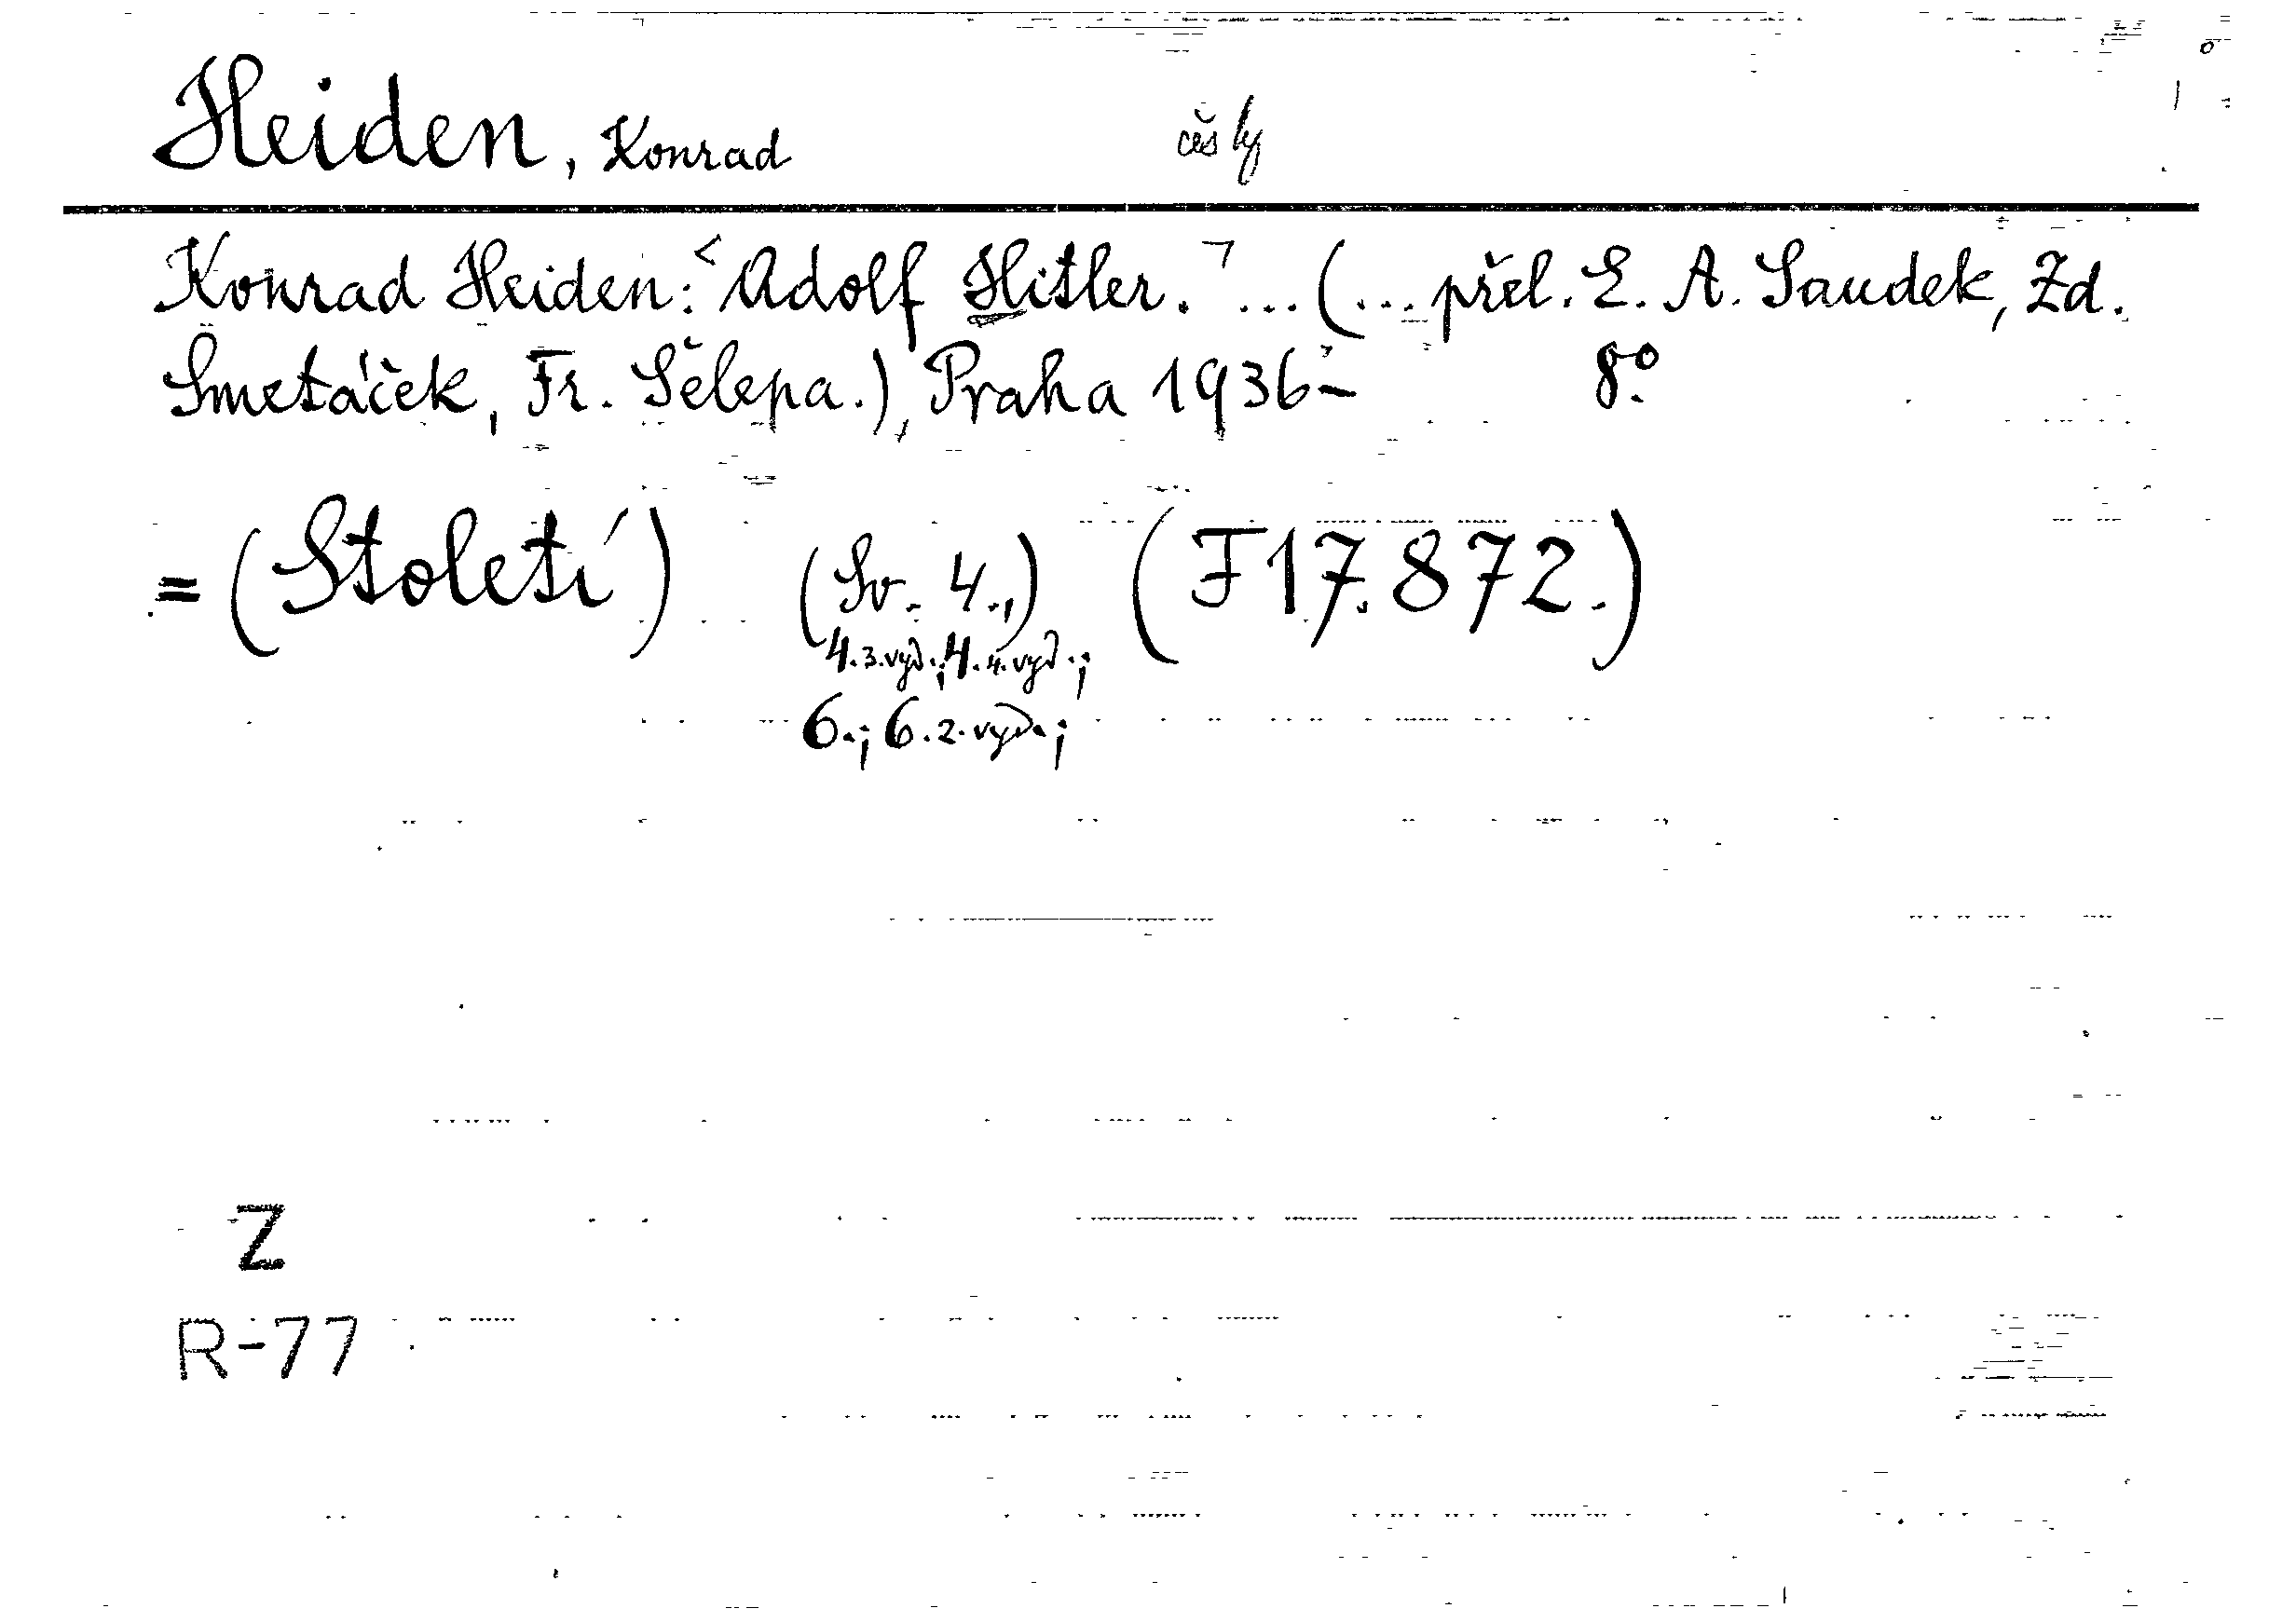 Heiden, Konrad česky
Konrad Heiden: <Adolf Hitler.> ... (... přel. E. A. Saudek, Zd.
Smetáček, Fr. Šelepa.), Praha 1936- 8°.
= (Století) (Sv. 4.,) (F 17.872.)
4. 3. vyd.; 4. 4. vyd.;
6.; 6. 2. vyd.;
Z
R-77